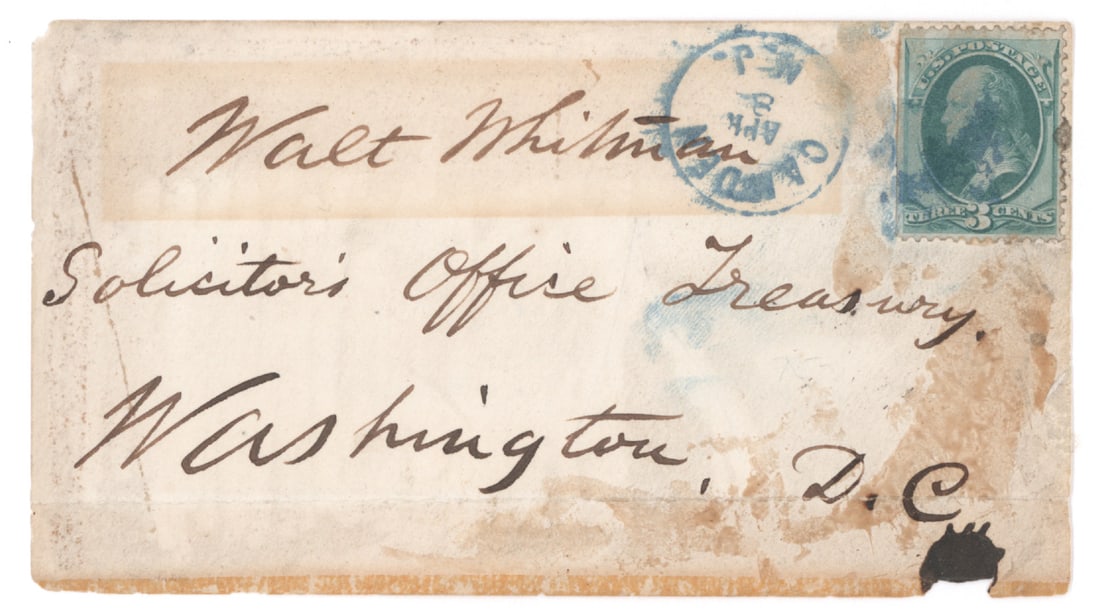 Walt Whitman
CAMDEN
APR
3
N.J.
U.S. POSTAGE
THREE 3 CENTS
Solicitor's Office Treasury.
Washington, D.C.